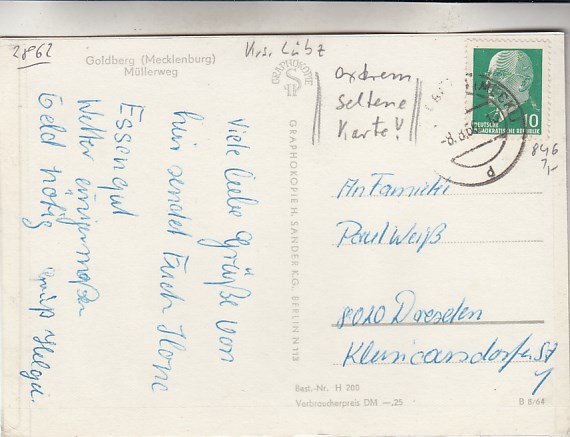 2862
Krs. Lübz
Goldberg (Mecklenburg)
Müllerweg
GRAPHOKOPIE
SH
extrem
seltene
Karte!
DEUTSCHE
DEMOKRATISCHE REPUBLIK
10
MECKL
P
846
7,-
Viele liebe Grüße von
hier sendet Euch
Essen gut
Wetter einigermaßen
Geld nötig
Gruß Helga.
GRAPHOKOPIE H. SANDER K.G. BERLIN N 113
An Familie
Paul Weiß
8020 Dresden
1
Best.-Nr. H 200
Verbraucherpreis DM —,25
B 8/64